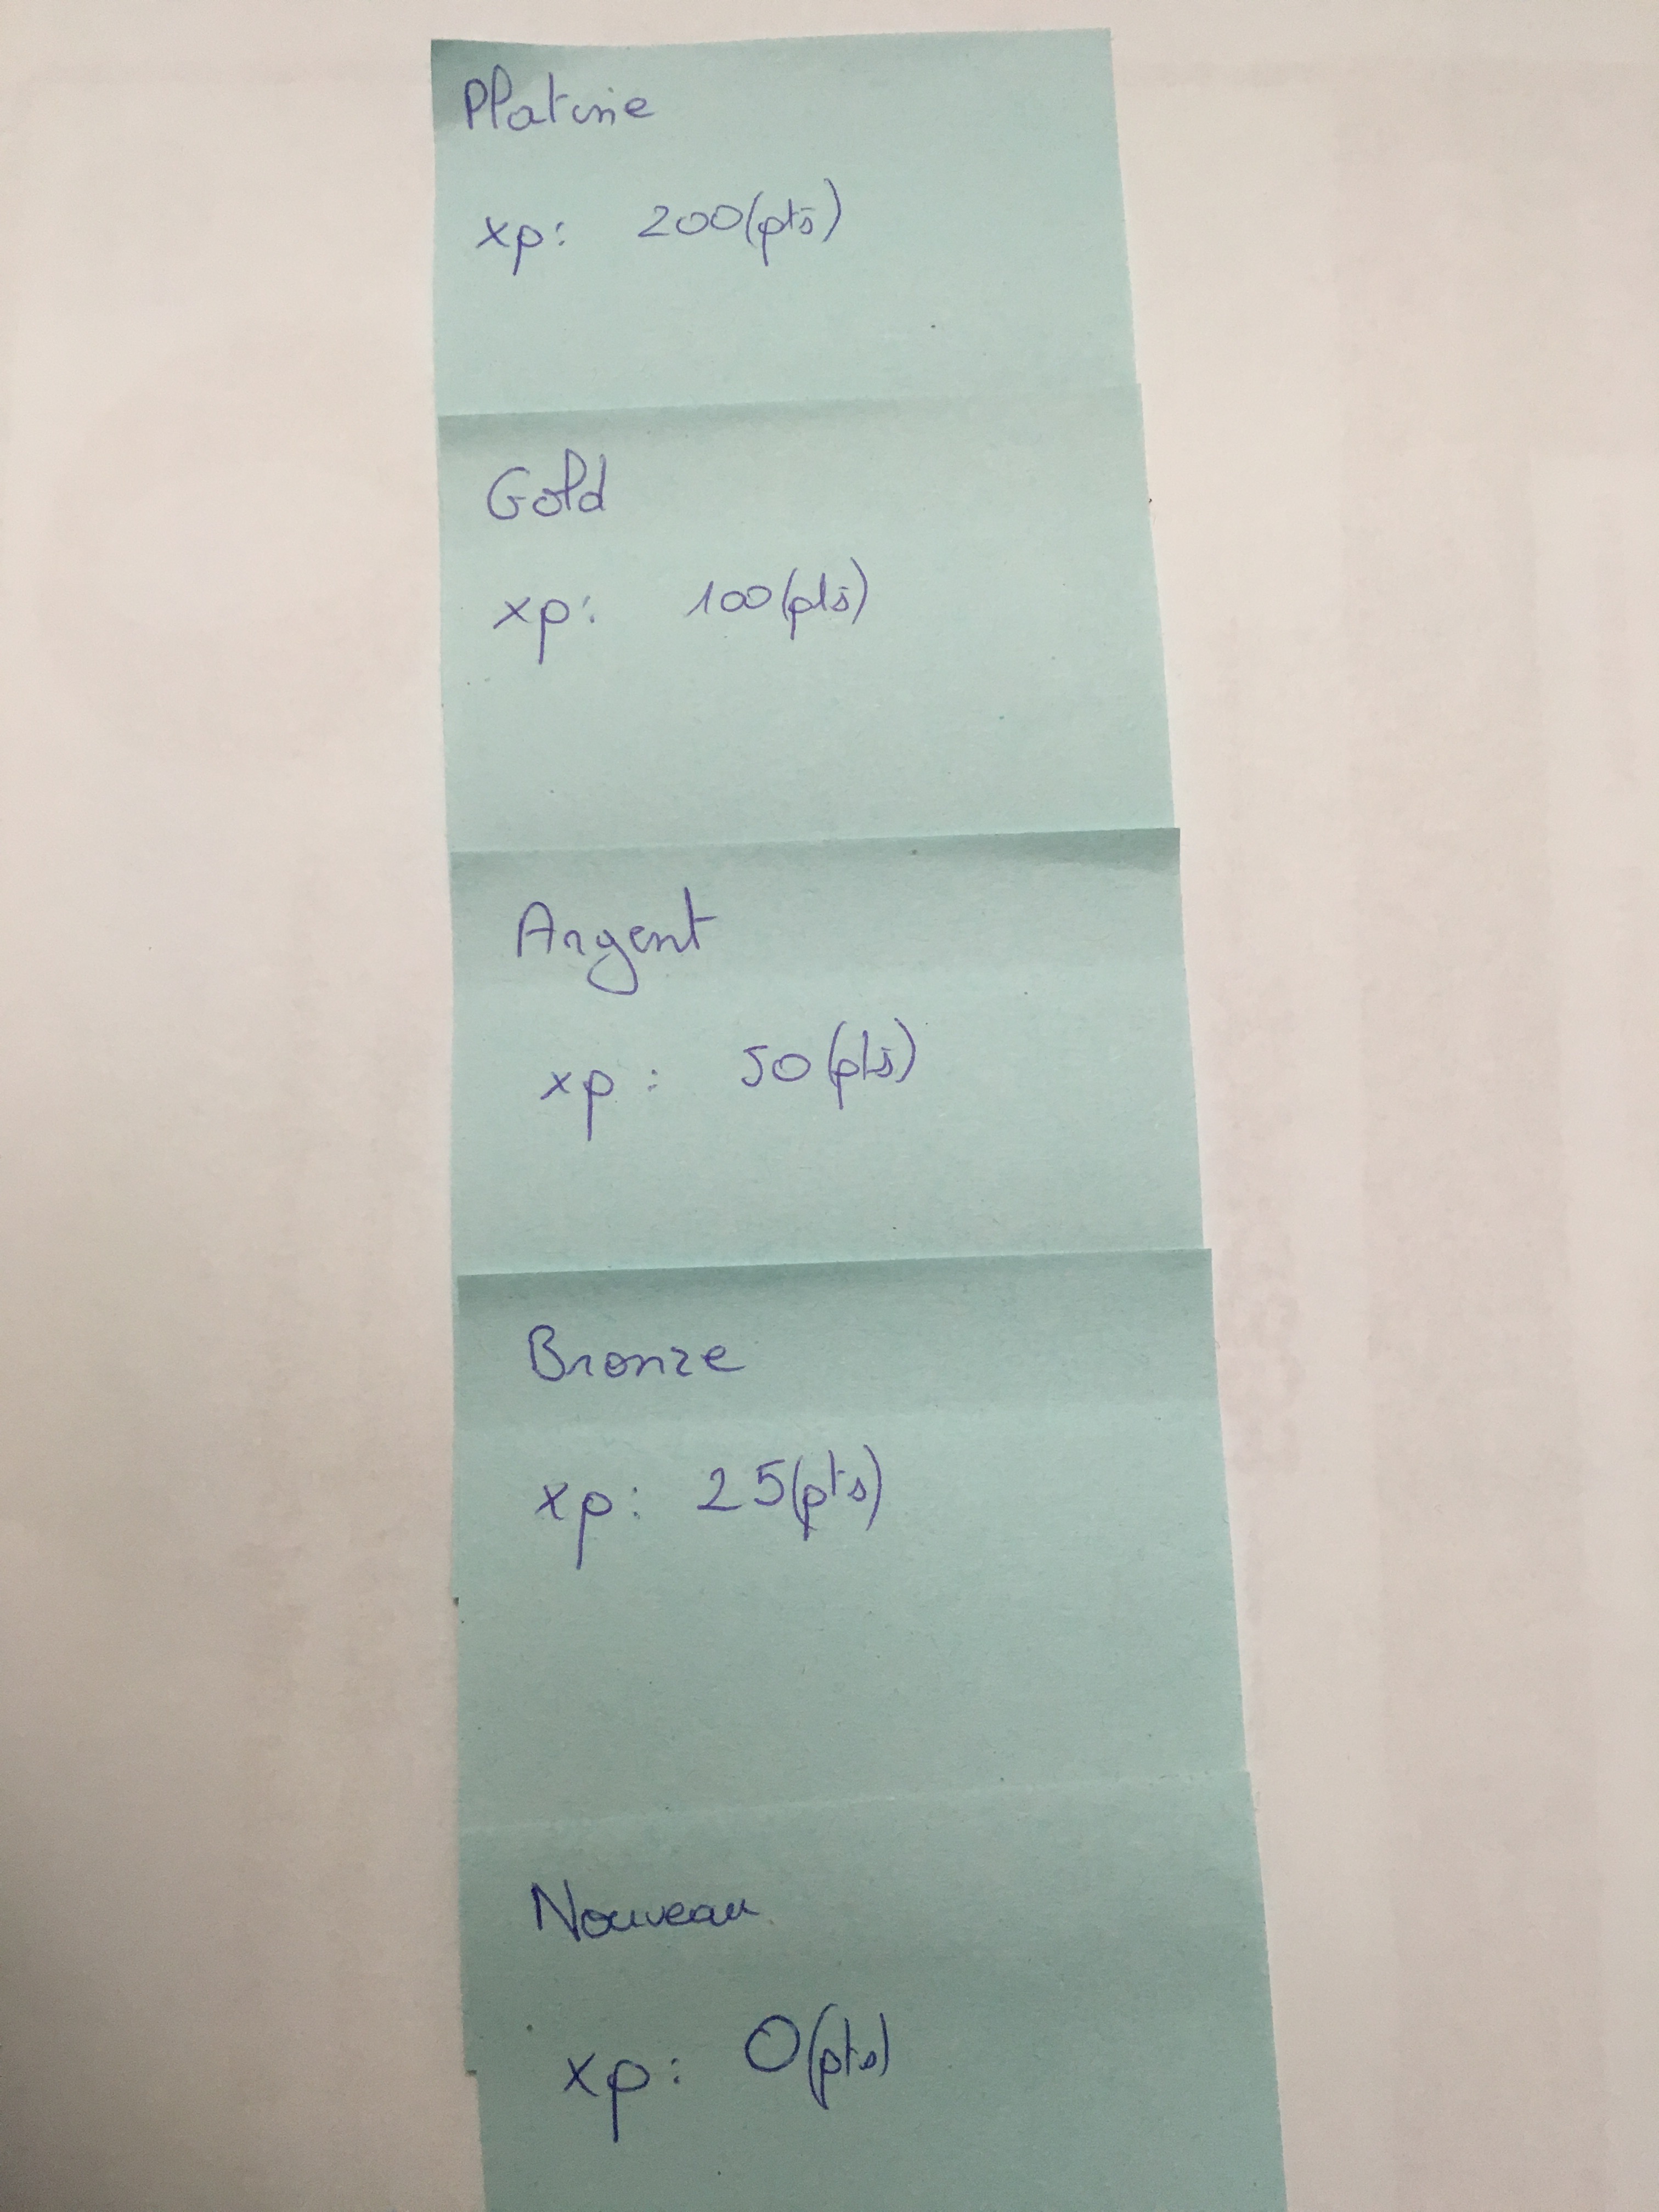 Platine
xp: 200(pts)
Gold
xp: 100(pts)
Argent
xp: 50(pts)
Bronze
xp: 25(pts)
Nouveau
xp: 0(pts)